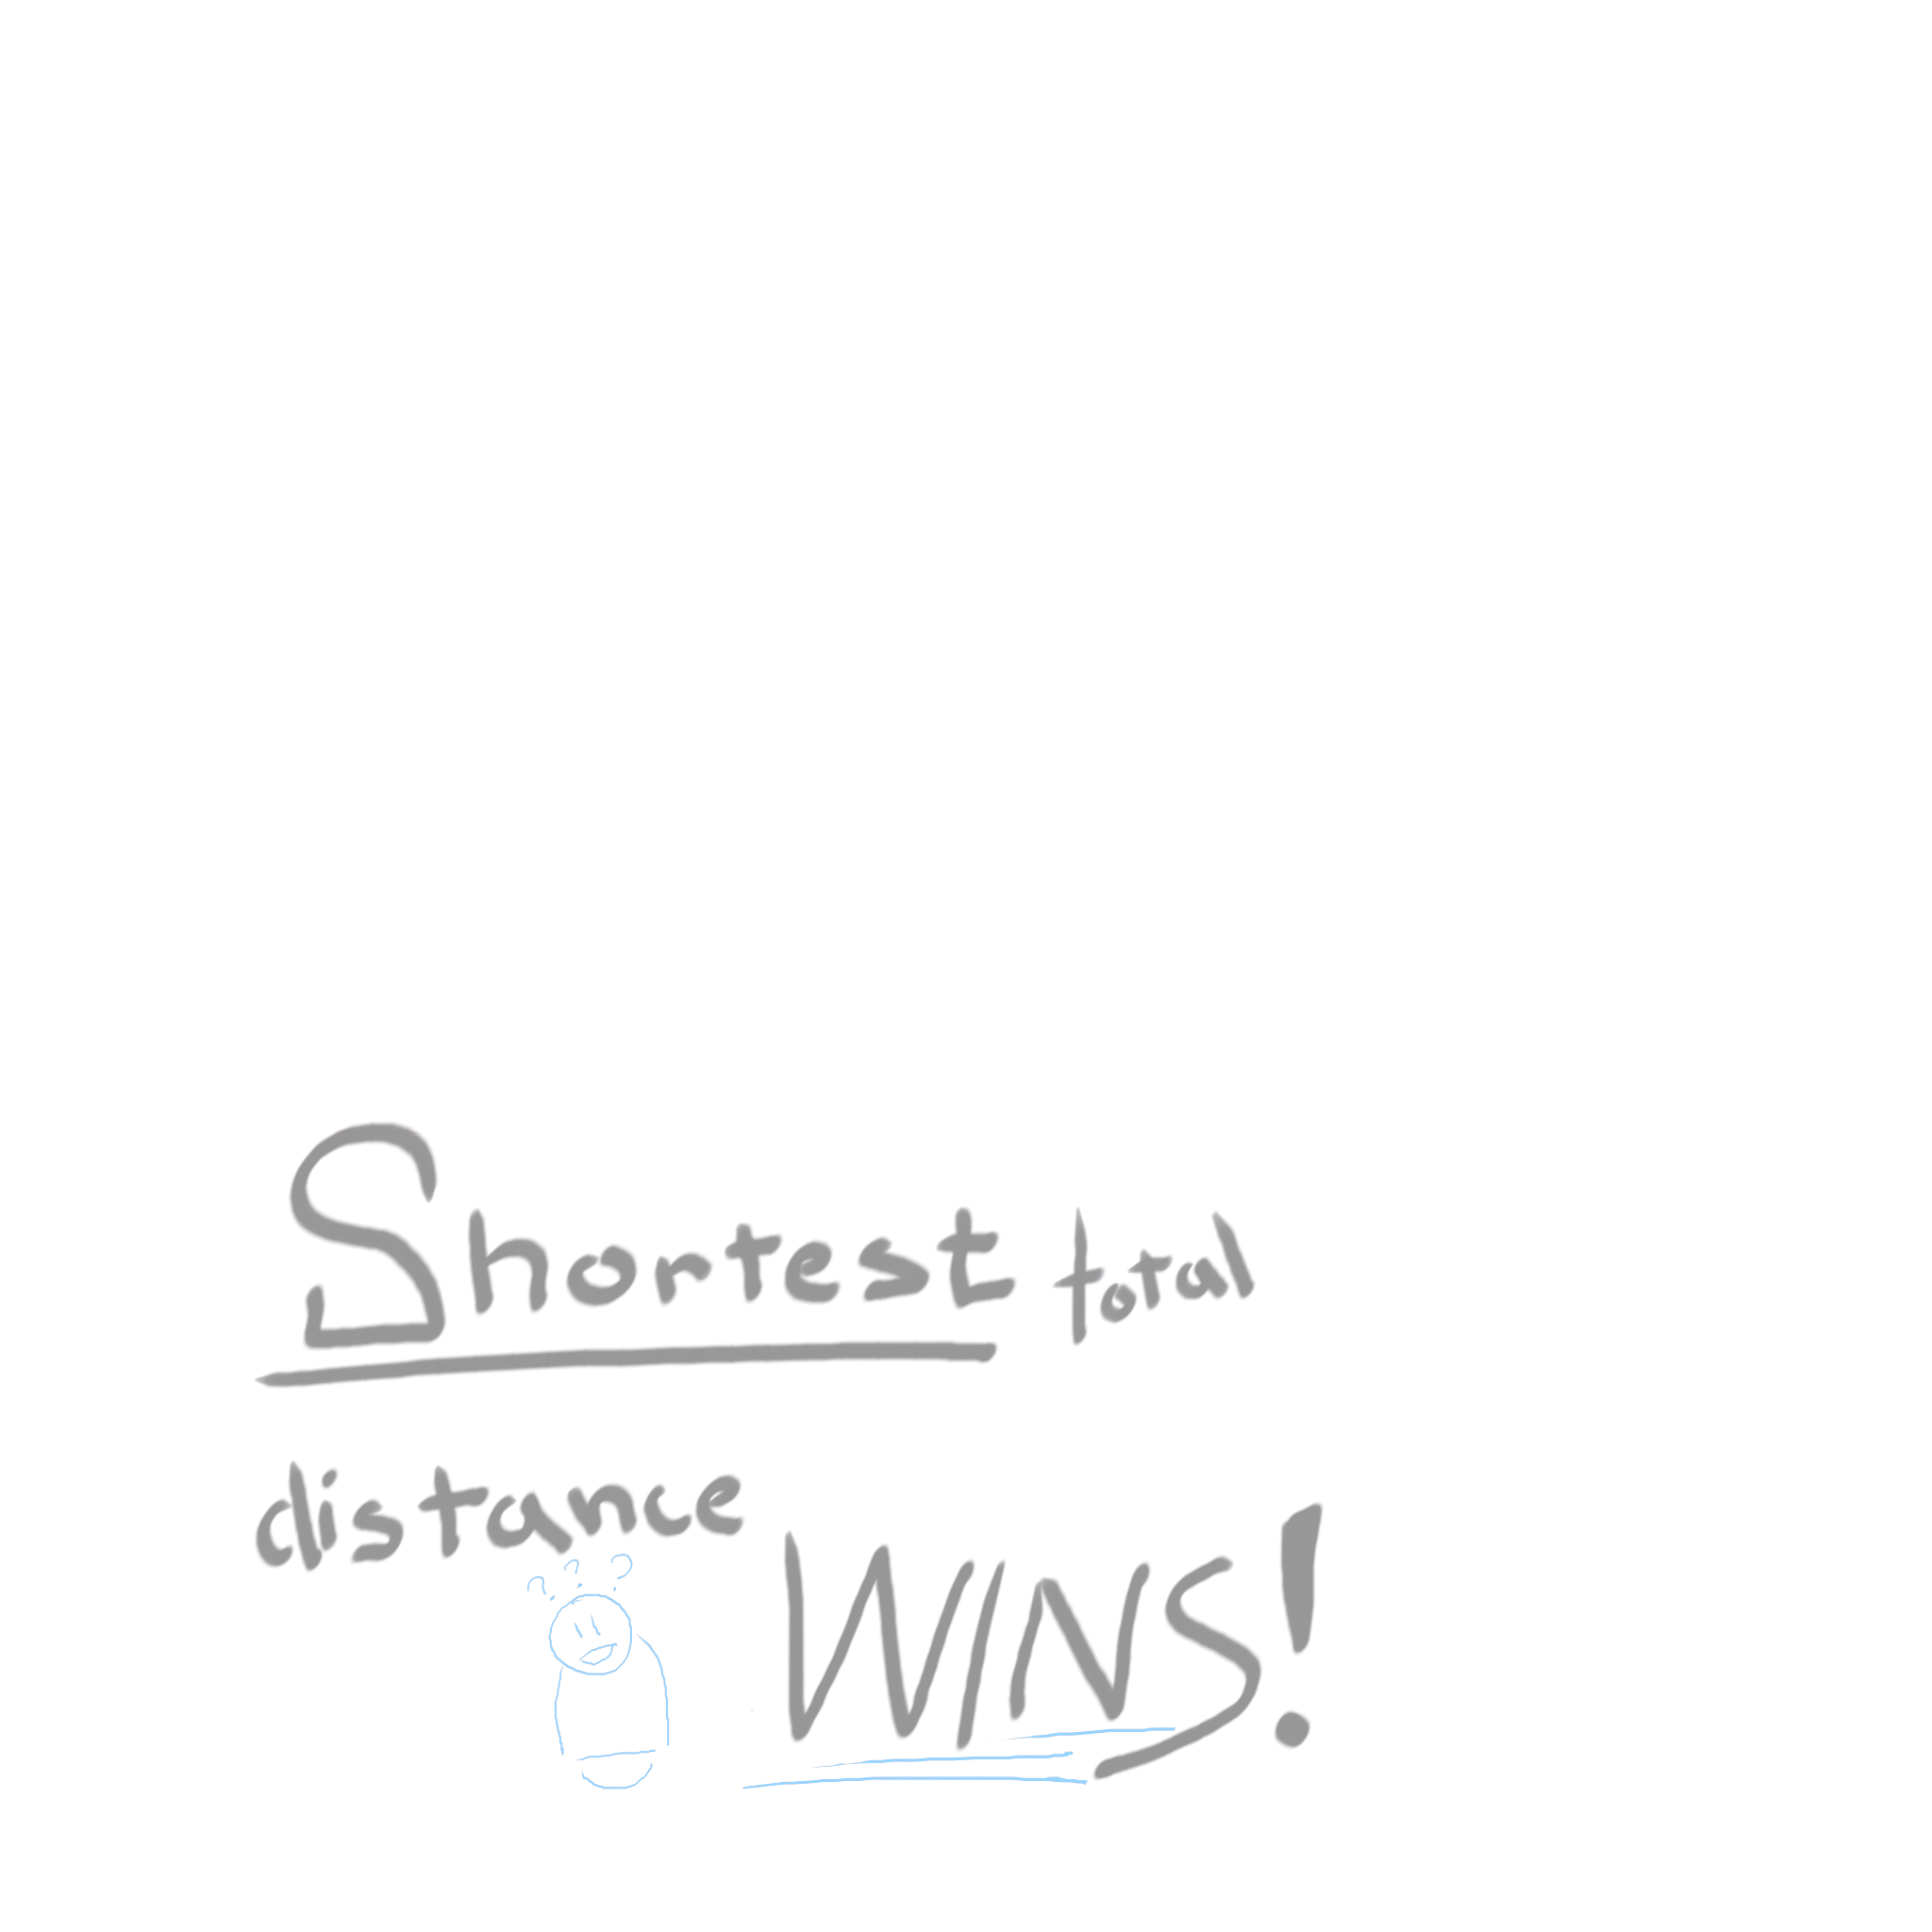 Shortest total
distance
WINS!
???